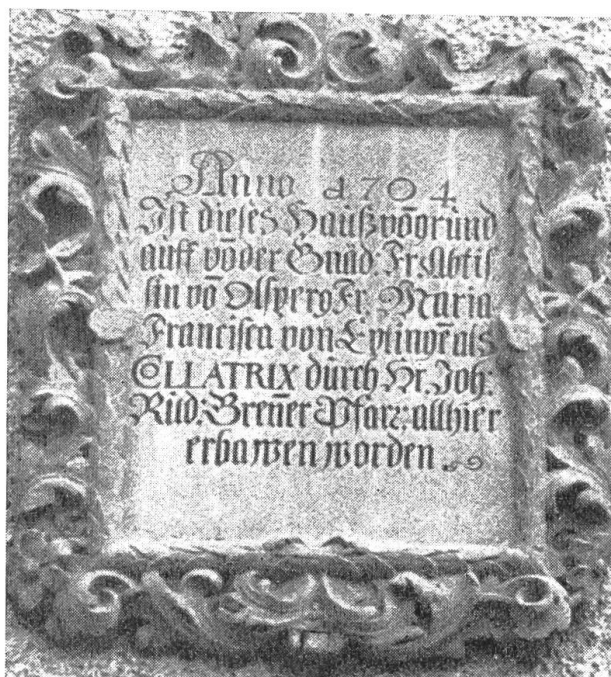 Anno 1704
Ist dieses Haüß vō grund
auff vō der Gnäd. Fr. Abtis
sin vō Olsperg Fr. Maria
Francisca von Eptingē als
COLLATRIX dürch Hr. Joh:
Rüd: Breñer Pfarr: allhier
erbawen worden